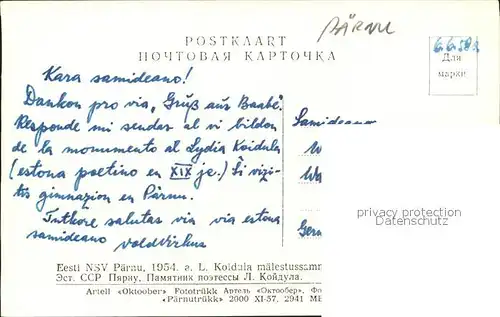 PÄRNU
POSTKAART
ПОЧТОВАЯ КАРТОЧКА
6.6.58
Для
марки
Kara samideano!
Dankon pro via „Gruß aus Baabe".
Responde mi sendas al vi bildon
de la monumento al Lydia Koidula
(estona poetino en XIX jc.) Ŝi vizi-
tis gimnazion en Pärnu.
Intkore salutas vin via estona
samideano
Samideano
privacy protection
Datenschutz
Eesti NSV Pärnu, 1954. a. L. Koidula mälestussamm
Эст. ССР Пярну, Памятник поэтессы Л. Койдула.
Artell «Oktoober» Fototrükk Артель «Октообер», Фо
«Pärnutrükk» 2000 XI-57. 2941 MB